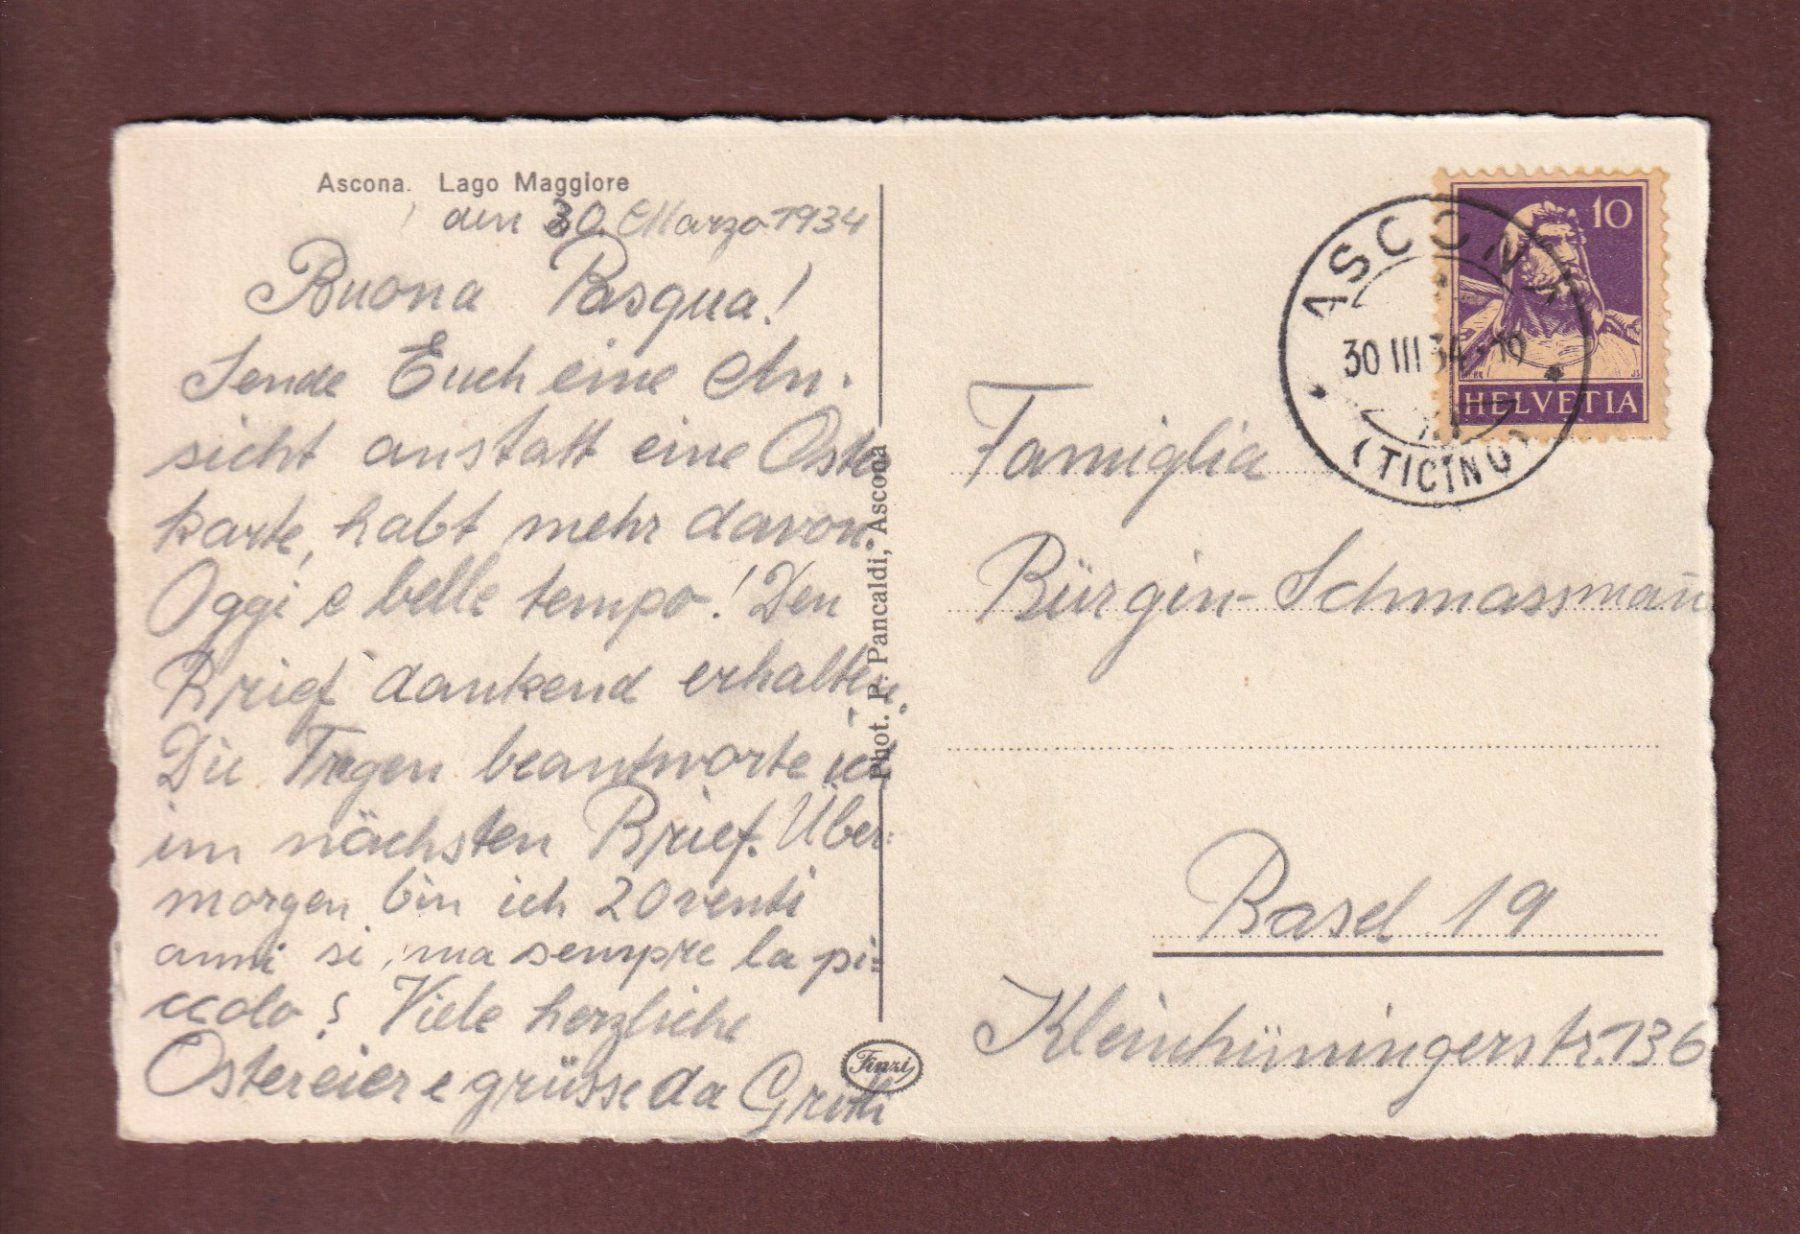 Ascona. Lago Maggiore
den 30. Marzo 1934
Buona Pasqua!
Sende Euch eine An-
sicht anstatt eine Oster
karte, habt mehr davon.
Oggi e belle tempo! Den
Brief dankend erhalten.
Die Fragen beantworte ich
im nächsten Brief. Über-
morgen bin ich 20 venti
anni si, ma sempre la pi-
ccola! Viele herzliche
Ostereier e grüsse da
Phot. P. Pancaldi, Ascona
Finzi
10
HELVETIA
ASCONA
30 III 34 - 16
(TICINO)
Famiglia
Bürgin-Schmassmañ
Basel 19
Kleinhüningerstr. 136